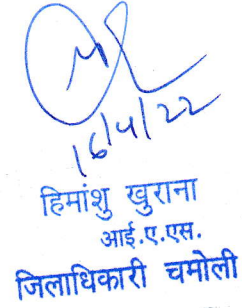 16/4/22
हिमांशु खुराना
आई.ए.एस.
जिलाधिकारी चमोली